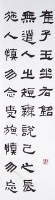 崔子玉坐右銘
無道人之短無說己之長
施人慎勿念受施慎勿忘